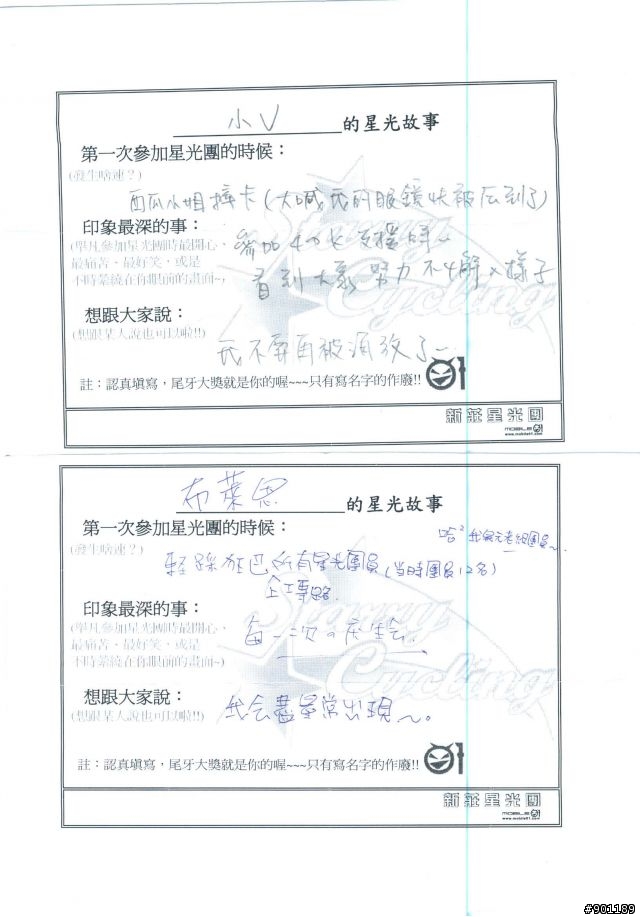 小V 的星光故事
第一次參加星光團的時候：
(發生啥速？)
西瓜小姐摔卡(大喊我的眼鏡快被压到了)
印象最深的事：
(舉凡參加星光團時最開心、
最痛苦、最好笑、或是
不時縈繞在你眼前的畫面~)
參加
看到大家努力不懈的樣子
想跟大家說：
(想跟某人說也可以啦!!)
我不要再被消 了~
註：認真填寫，尾牙大獎就是你的喔~~~只有寫名字的作廢!!
01
新莊星光團
MOBILE01
www.mobile01.com
布萊恩 的星光故事
第一次參加星光團的時候：
(發生啥速？)
哈² 我與元老組團員~
輕踩狂巴所有星光團員(當時團員12名)
印象最深的事：
(舉凡參加星光團時最開心、
最痛苦、最好笑、或是
不時縈繞在你眼前的畫面~)
每一次の庆生会
想跟大家說：
(想跟某人說也可以啦!!)
我会盡量常出現~。
註：認真填寫，尾牙大獎就是你的喔~~~只有寫名字的作廢!!
01
新莊星光團
MOBILE01
www.mobile01.com
Starry
Cycling
#901189